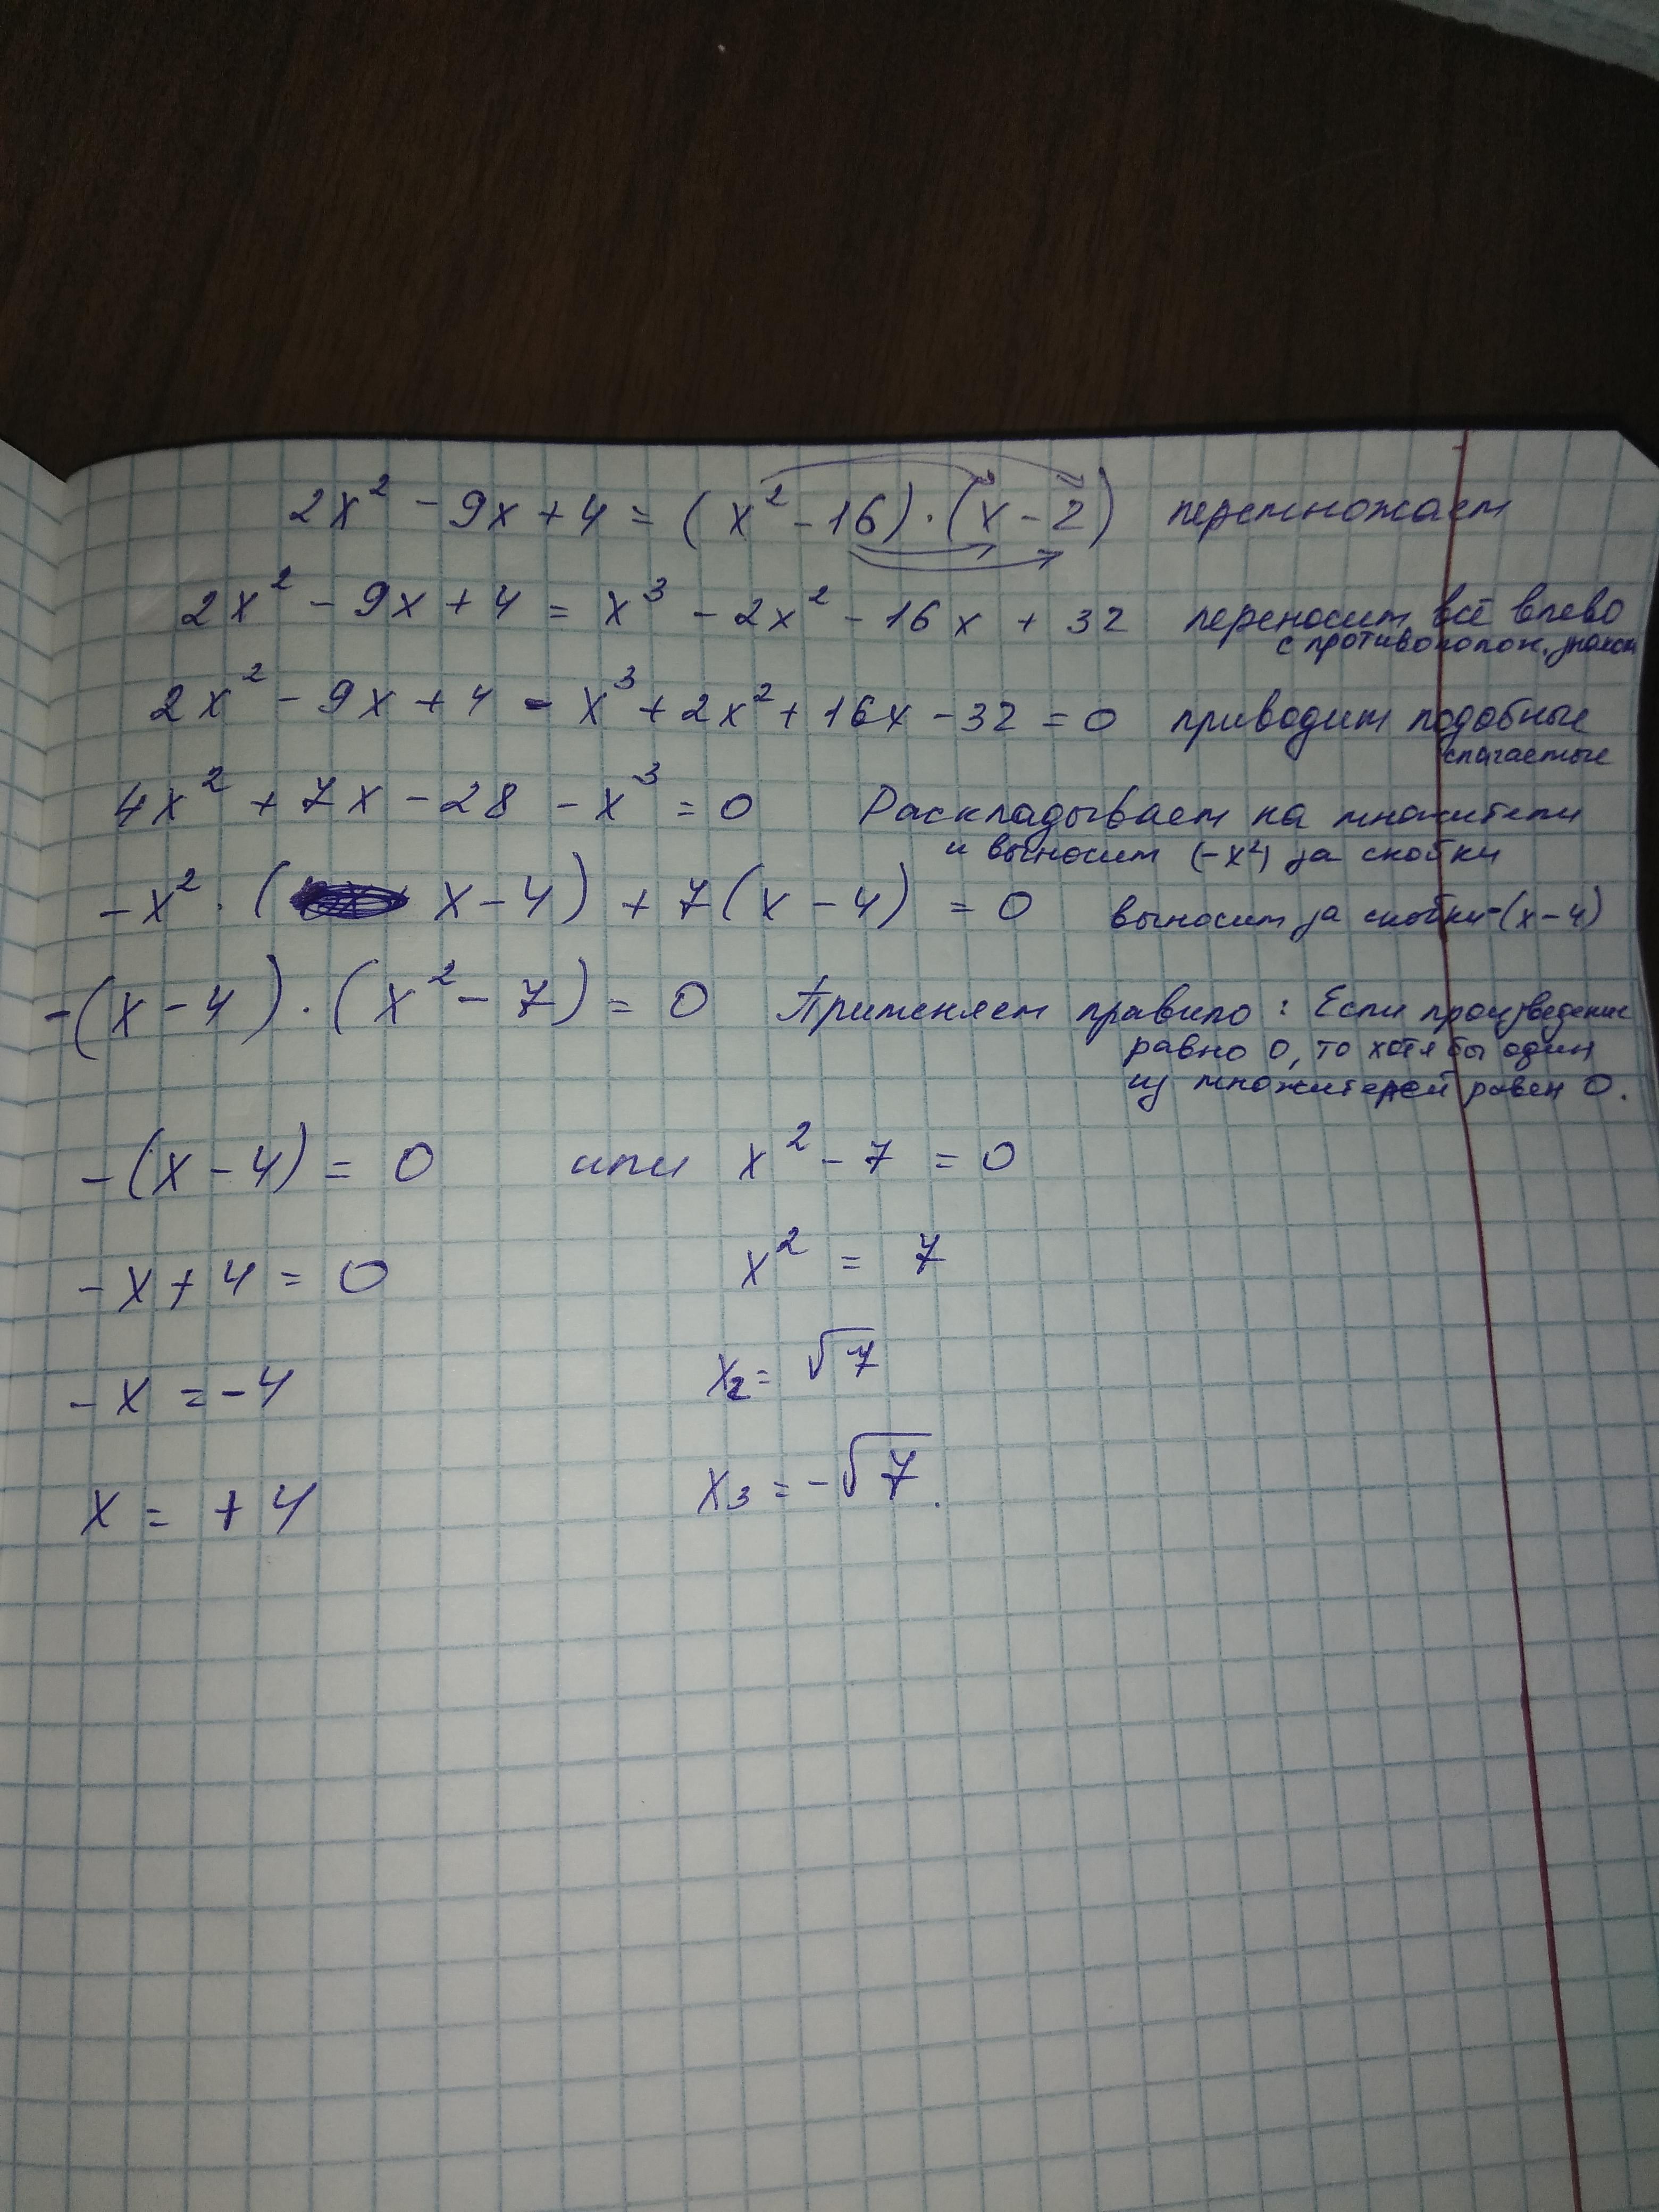 2x² - 9x + 4 = (x² - 16) · (x - 2) перемножаем
2x² - 9x + 4 = x³ - 2x² - 16x + 32 переносим всё влево
с противополож. знаком
2x² - 9x + 4 - x³ + 2x² + 16x - 32 = 0 приводим подобные
слагаемые
4x² + 7x - 28 - x³ = 0 Раскладываем на множители
и выносим (-x²) за скобки
-x² · (x - 4) + 7(x - 4) = 0 выносим за скобки -(x - 4)
-(x - 4) · (x² - 7) = 0 Применяем правило: Если произведение
равно 0, то хотя бы один
из множителей равен 0.
-(x - 4) = 0 или x² - 7 = 0
-x + 4 = 0 x² = 7
-x = -4 x₂ = √7
x = +4 x₃ = -√7.